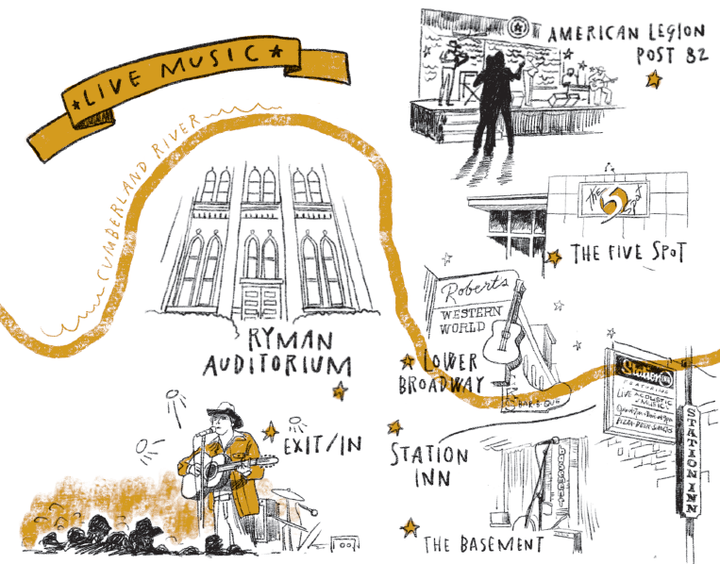 LIVE MUSIC
CUMBERLAND RIVER
AMERICAN LEGION
POST 82
THE 5 SPOT
THE FIVE SPOT
RYMAN
AUDITORIUM
Robert's
WESTERN
WORLD
LOWER
BROADWAY
BAR-B-QUE
EXIT/IN
STATION
INN
Station Inn
FEATURING
LIVE ACOUSTIC
MUSIC
STATION INN
THE BASEMENT